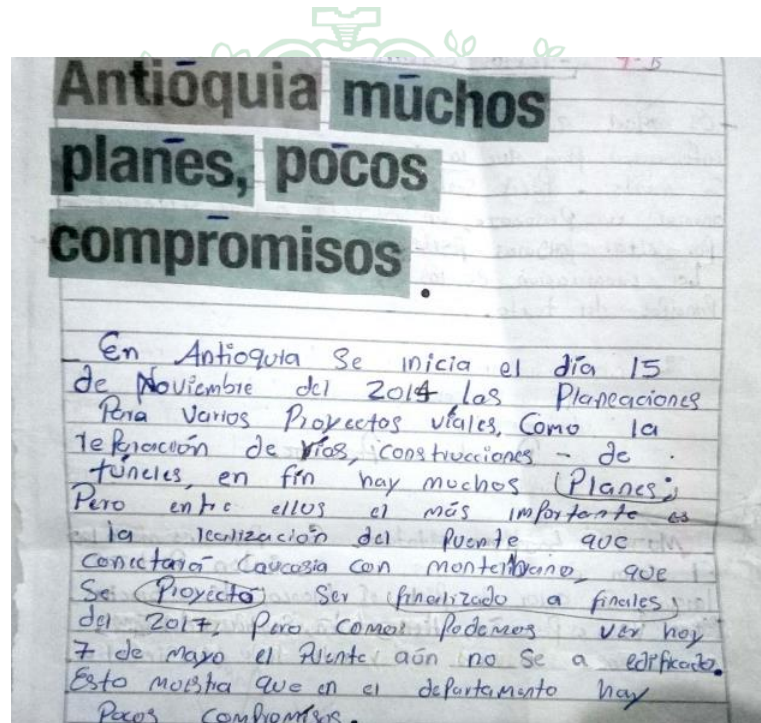 Antioquia muchos
planes, pocos
compromisos.
En Antioquia Se inicia el día 15
de Noviembre del 2014 las Planeaciones
Para Varios Proyectos viales, Como la
reparación de vías, construcciones - de
túneles, en fin hay muchos Planes;
Pero entre ellos el más importante es
la realización del Puente que
conectará Caucasia con montelibano, que
Se Proyecto Ser finalizado a finales
del 2017, Pero como Podemos ver hoy
7 de mayo el Puente aún no Se a edificado.
Esto muestra que en el departamento hay
Pocos Compromisos.